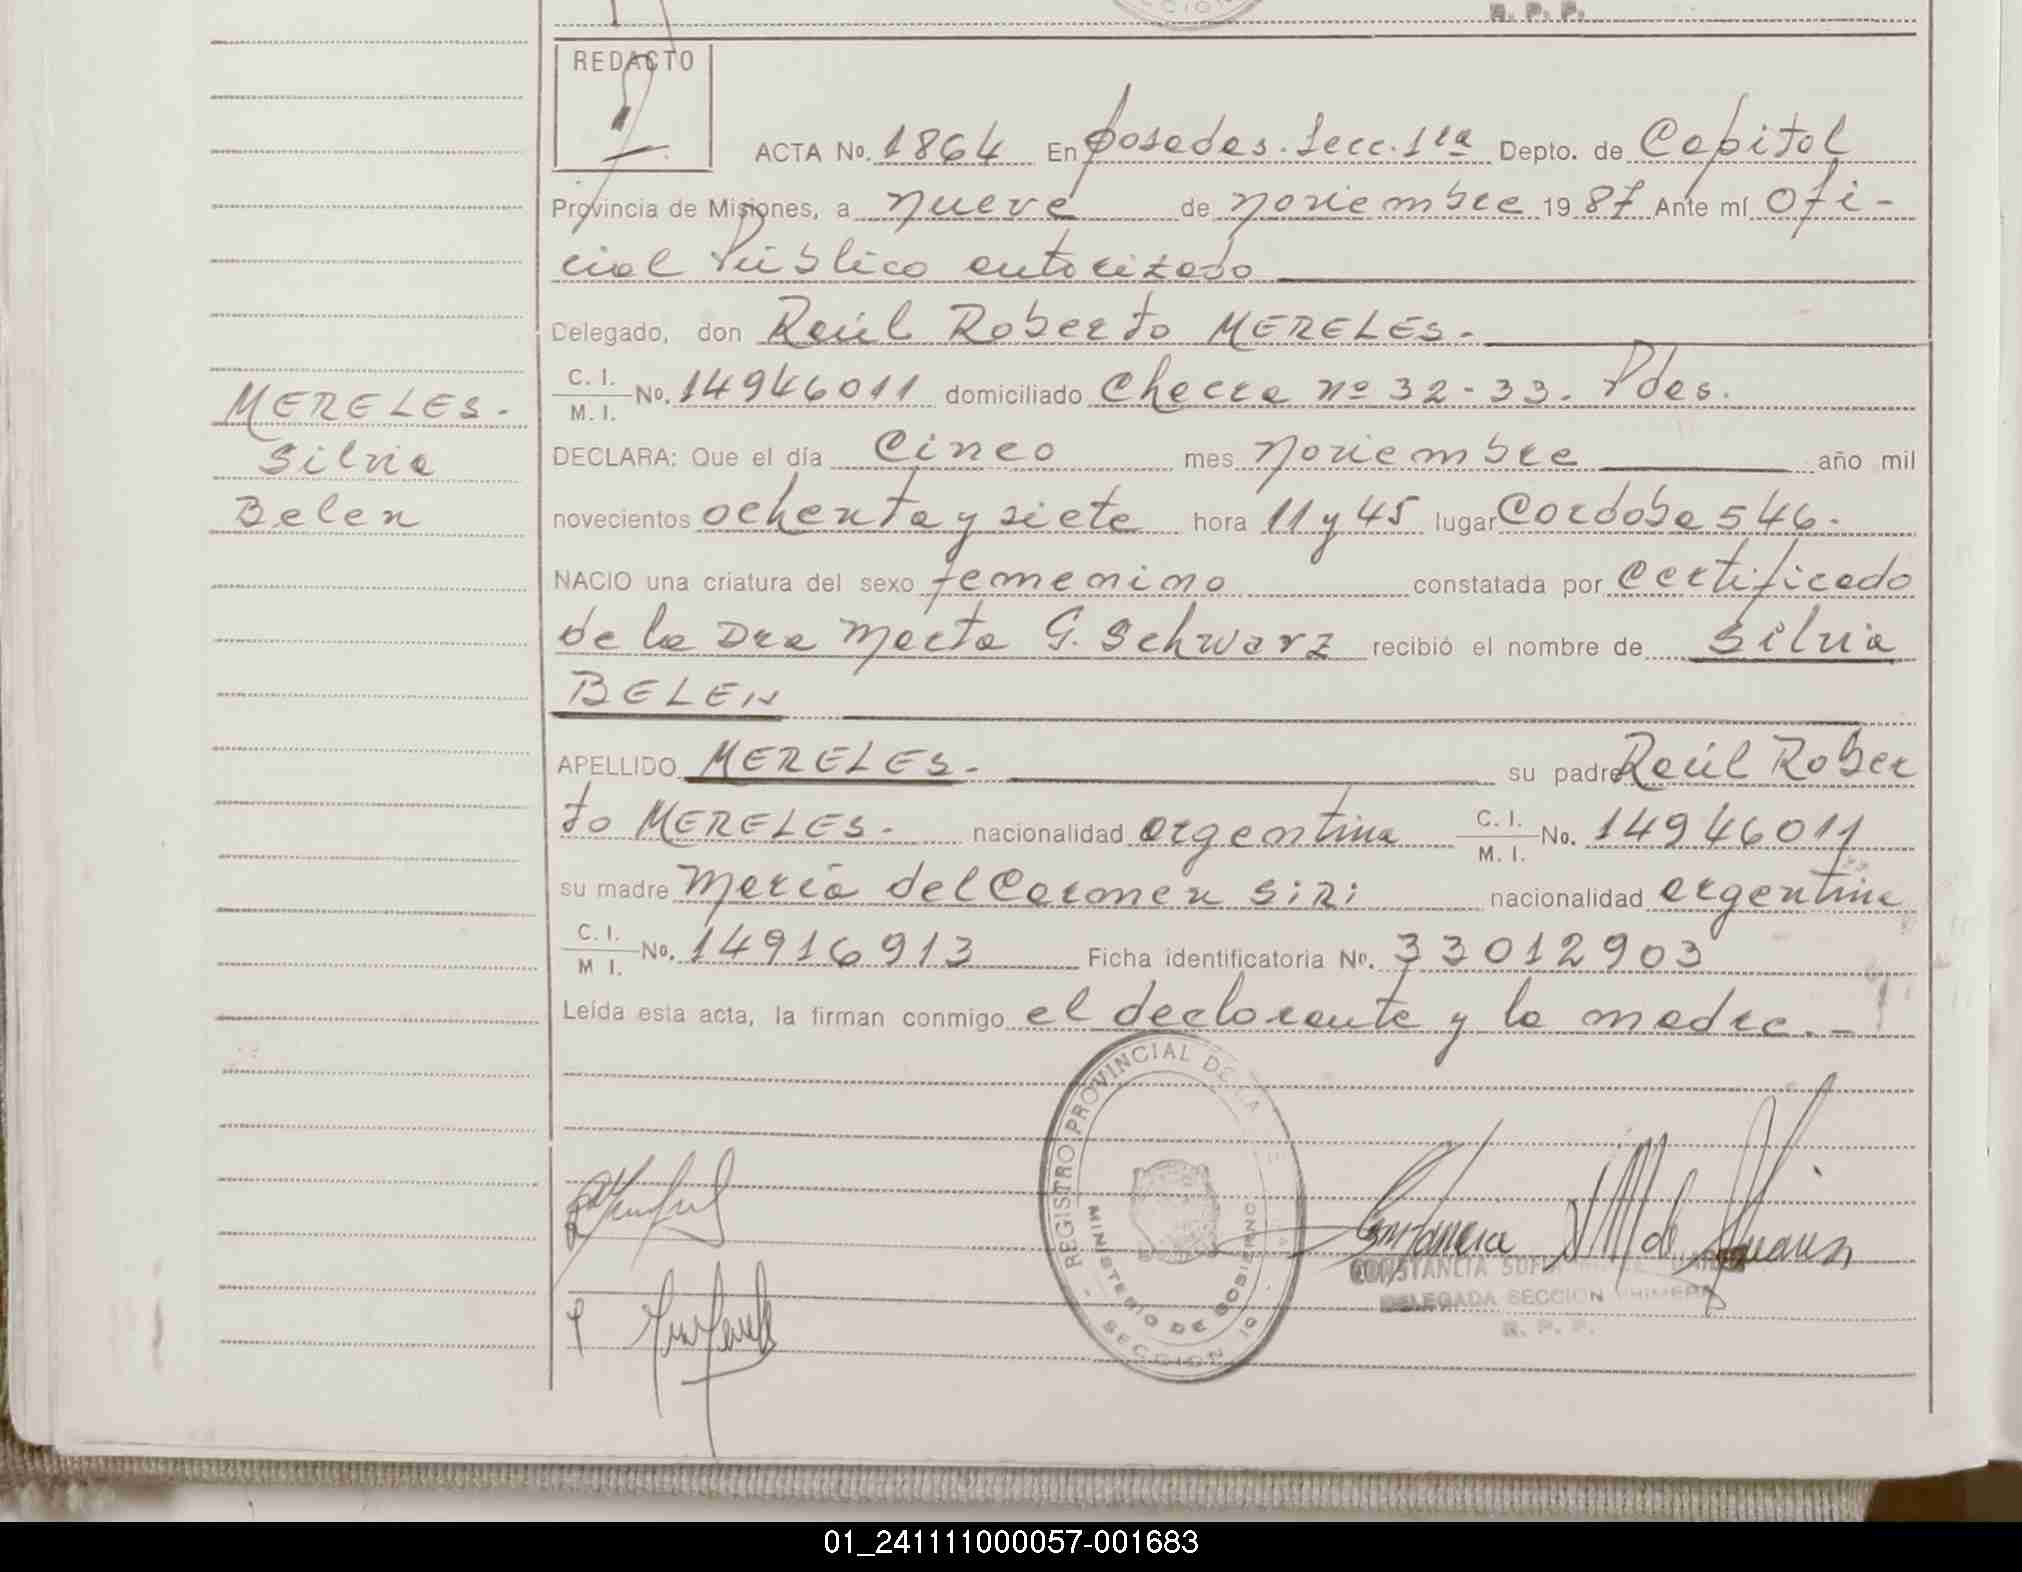 CCION
R. P. P.
REDACTO
ACTA No. 1864 En Posadas. Secc. 1ra Depto. de Capital
Provincia de Misiones, a nueve de noviembre 1987 Ante mí Ofi-
cial Público autorizado
Delegado, don Raúl Roberto MERELES.
C. I.
M. I. No. 14946011 domiciliado Chacra nº 32-33. Pdas.
MERELES.
DECLARA: Que el día Cinco mes noviembre año mil
Silvia
novecientos ochenta y siete hora 11 y 45 lugar Córdoba 546.
Belen
NACIO una criatura del sexo femenino constatada por certificado
de la Dra Marta G. Schwarz recibió el nombre de Silvia
BELEN
APELLIDO MERELES. su padre Raúl Rober
to MERELES. nacionalidad argentina C. I.
M. I. No. 14946011
su madre María del Carmen SiRi nacionalidad argentina
C. I.
M I. No. 14916913 Ficha identificatoria No. 33012903
Leída esta acta, la firman conmigo el declarante y la madre.-
REGISTRO PROVINCIAL DE LA
MINISTERIO DE GOBIERNO
SECCION 1a
CONSTANCIA
DELEGADA SECCION PRIMERA
R. P. P.
01_241111000057-001683